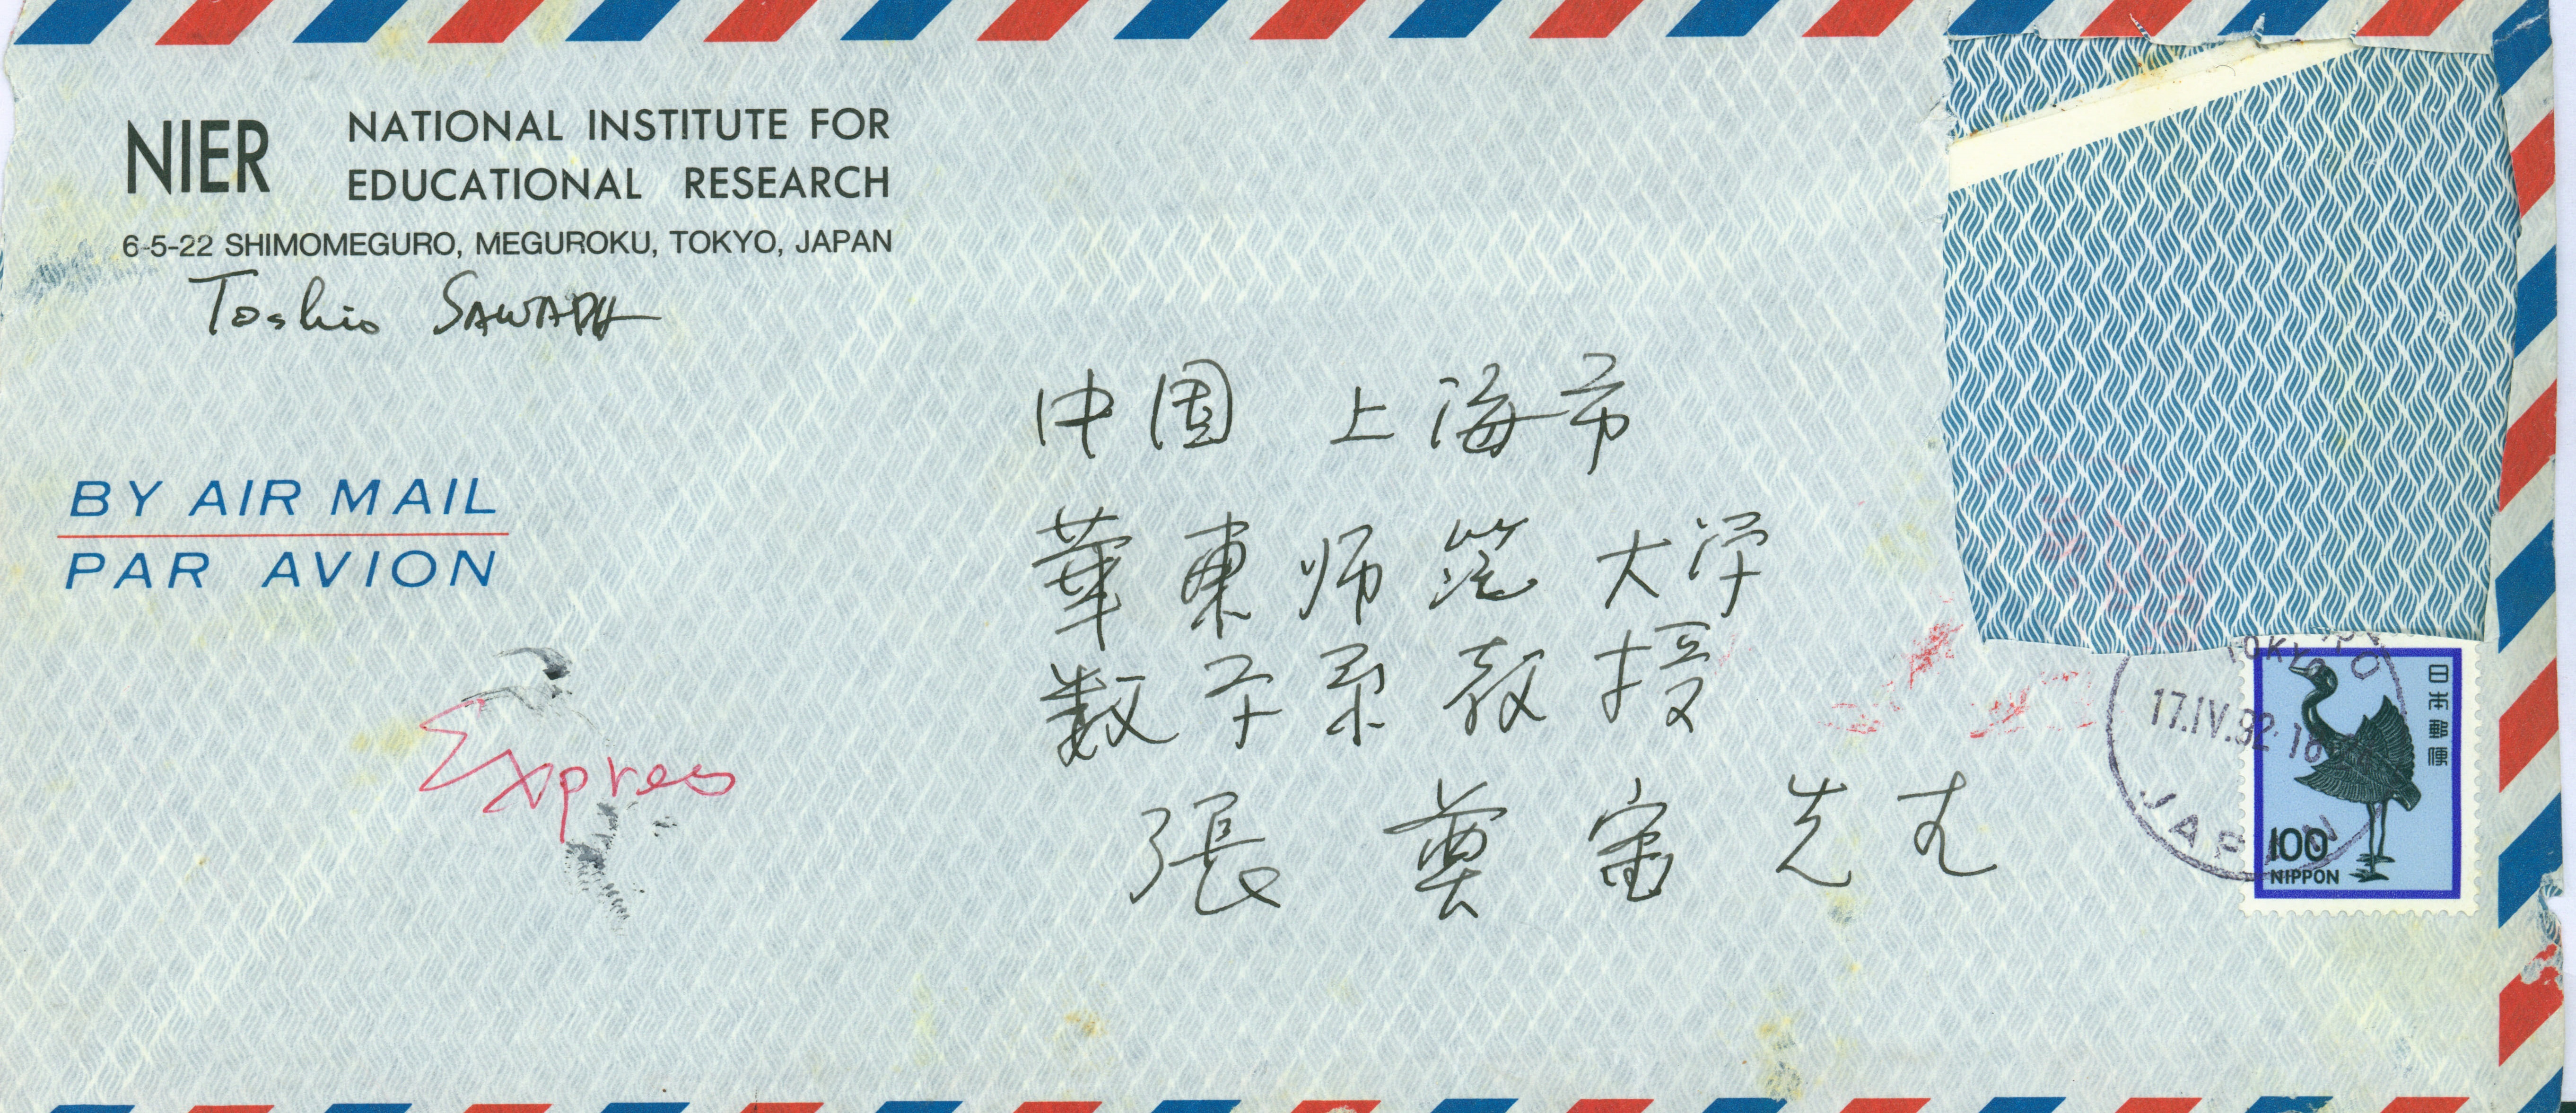 NIER NATIONAL INSTITUTE FOR
EDUCATIONAL RESEARCH
6-5-22 SHIMOMEGURO, MEGUROKU, TOKYO, JAPAN
Toshio SAWADA
中国 上海市
華東师范大学
数学系教授
張奠宙先生
BY AIR MAIL
PAR AVION
Express
TOKYO
17.IV.92 18
JAPAN
日本郵便
100
NIPPON